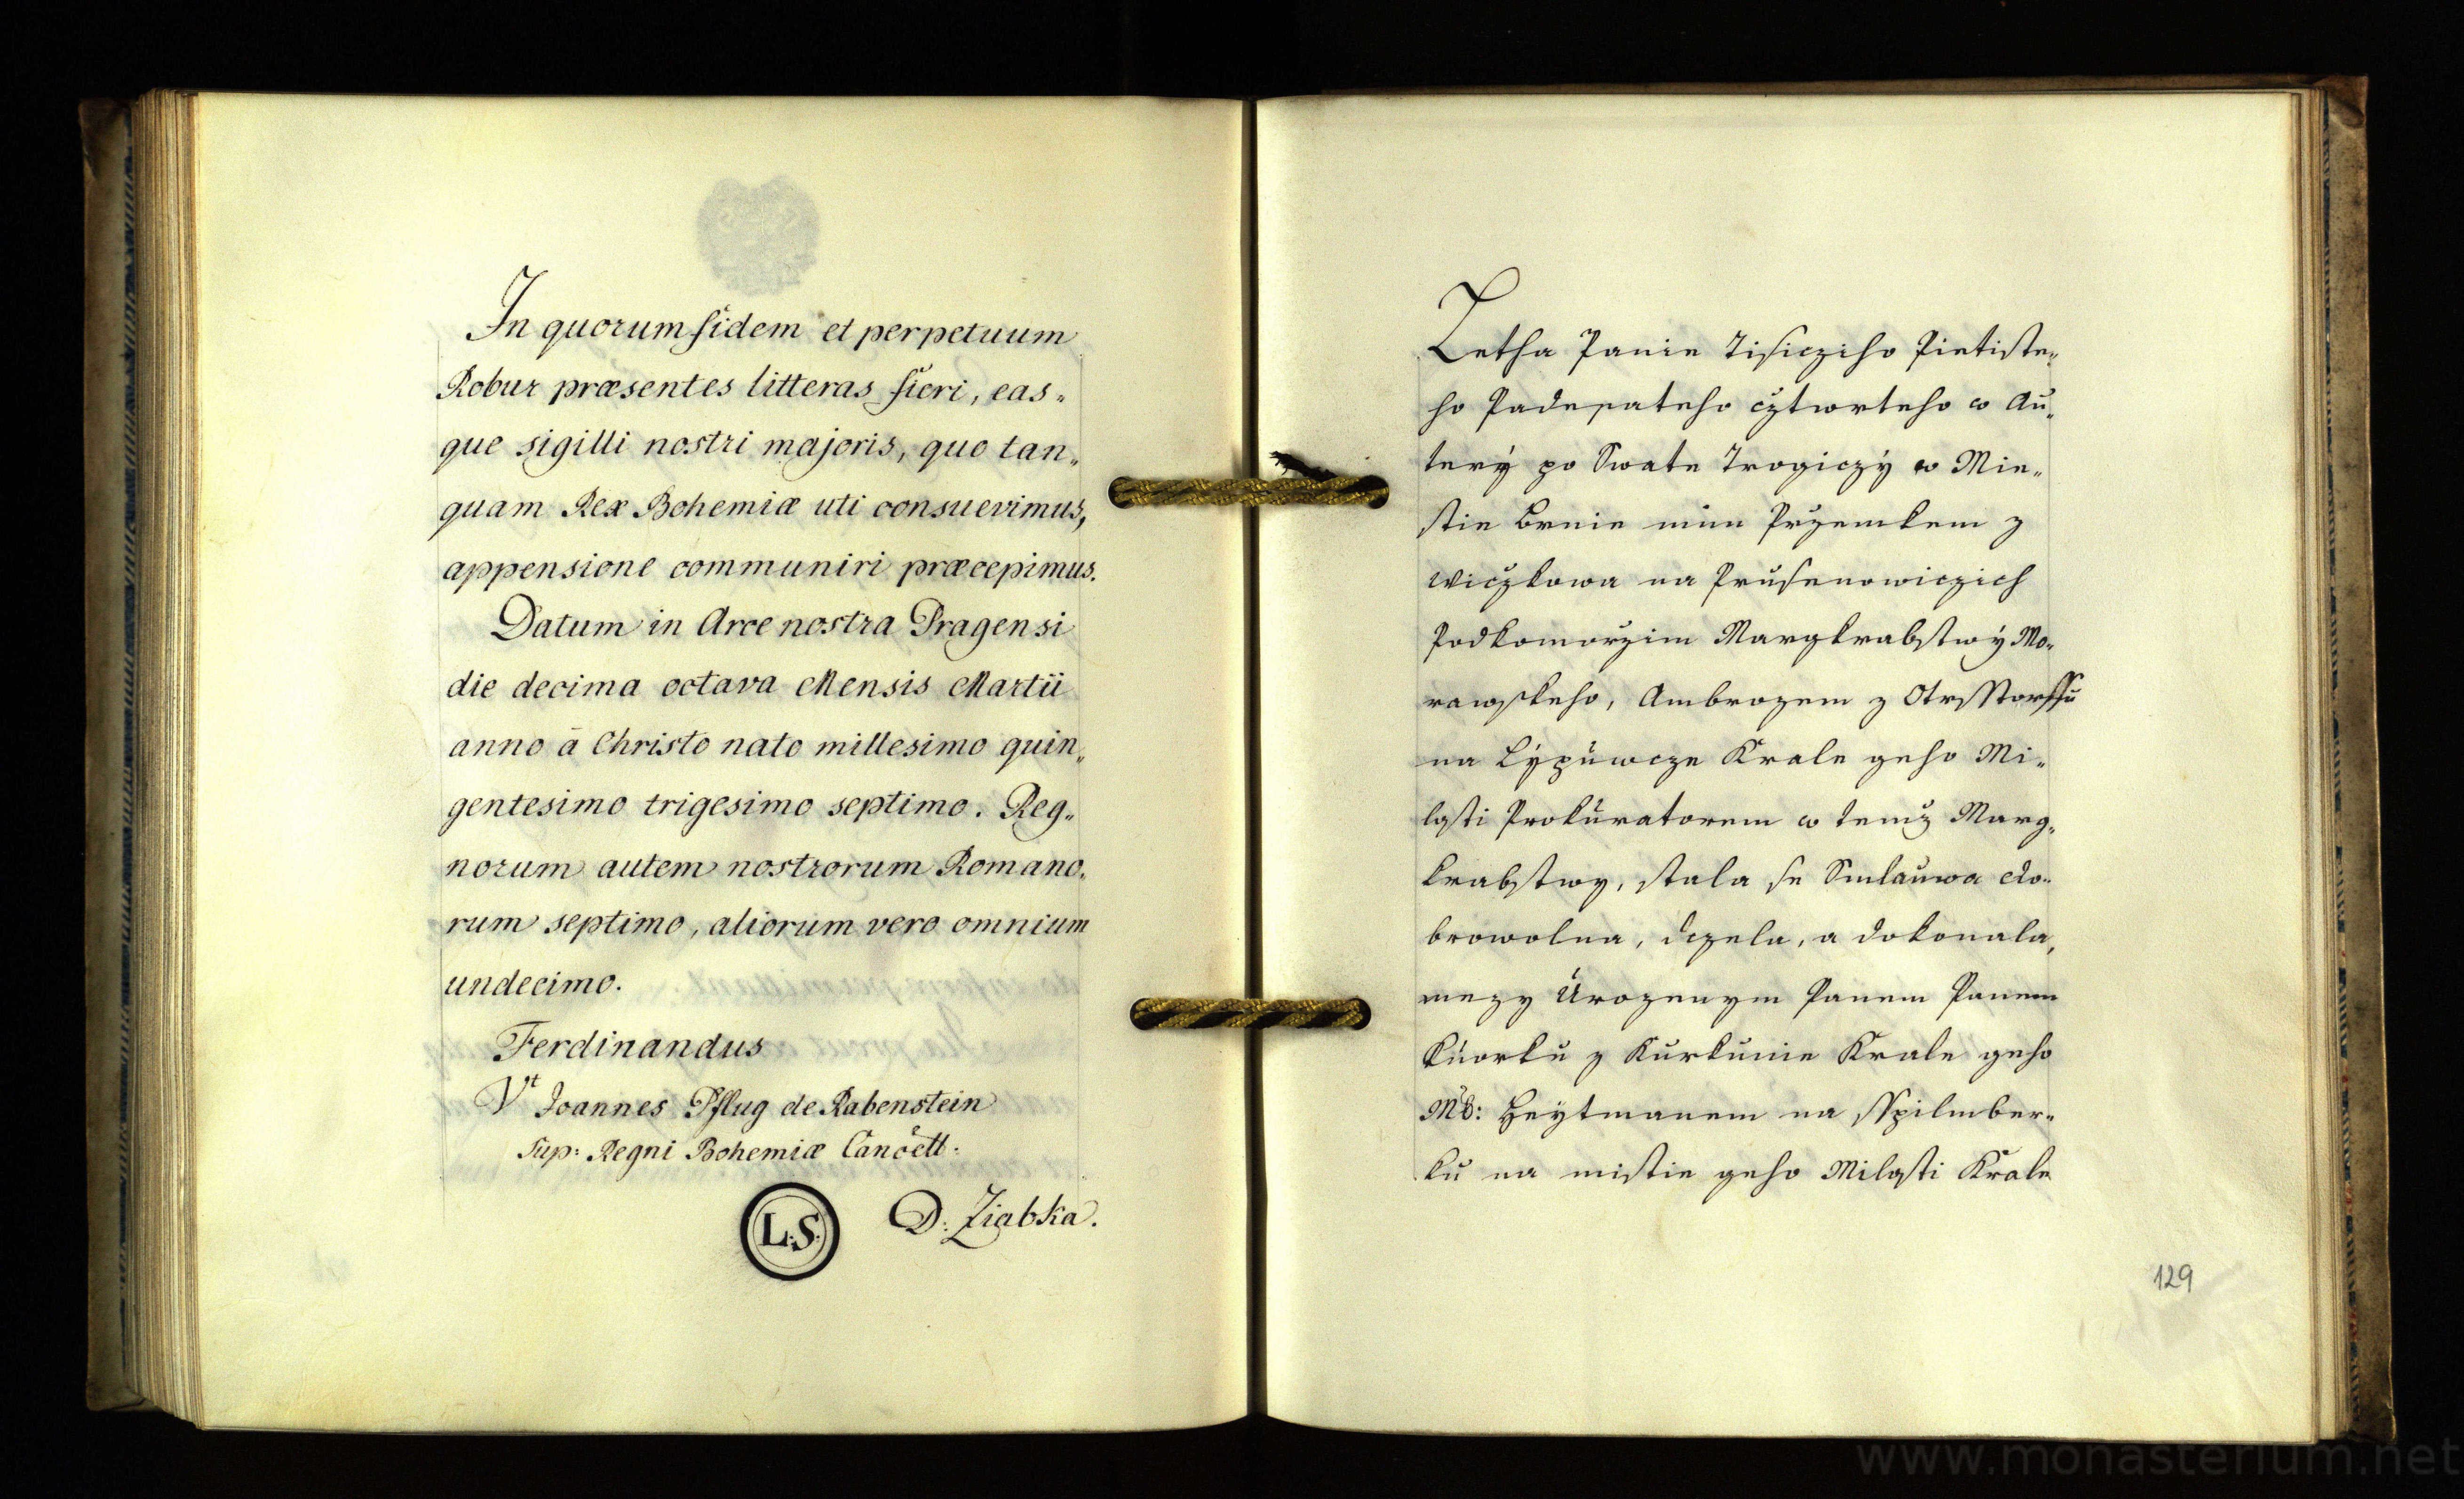 In quorum fidem et perpetuum
Robur præsentes litteras fieri, eas„
que sigilli nostri majoris, quo tan„
quam Rex Bohemiæ uti consuevimus,
appensione communiri præcepimus.
Datum in Arce nostra Pragensi
die decima octava Mensis Martii
anno â Christo nato millesimo quin„
gentesimo trigesimo septimo. Reg„
norum autem nostrorum Romano„
rum septimo, aliorum vero omnium
undecimo.
Ferdinandus
Vt Joannes Pflug de Rabenstein
Sup: Regni Bohemiæ Cancell:
L.S. D: Ziabka.
Letha Panie Tisicziho Pietiste„
ho Padesateho cżtwrteho w Au„
terẏ po Swate Trogiczẏ w Mie„
stie Brnie mím Prżemkem z
Wicżkowa na Prusenowiczich
Podkomorżim Margkrabstwẏ Mo„
rawskeho, Ambrozem z Otrsstorffu
na Lẏpuwcze Krale geho Mi„
losti Prokuratorem w temż Marg„
krabstwy, stala se Smlauwa do„
browolna, dczela, a dokonala,
mezy Urozenym Panem Panem
Kuorku z Kurkunie Krale geho
Mti: Heytmanem na Sspilmber„
ku na mistie geho Milosti Krale
129
www.monasterium.net